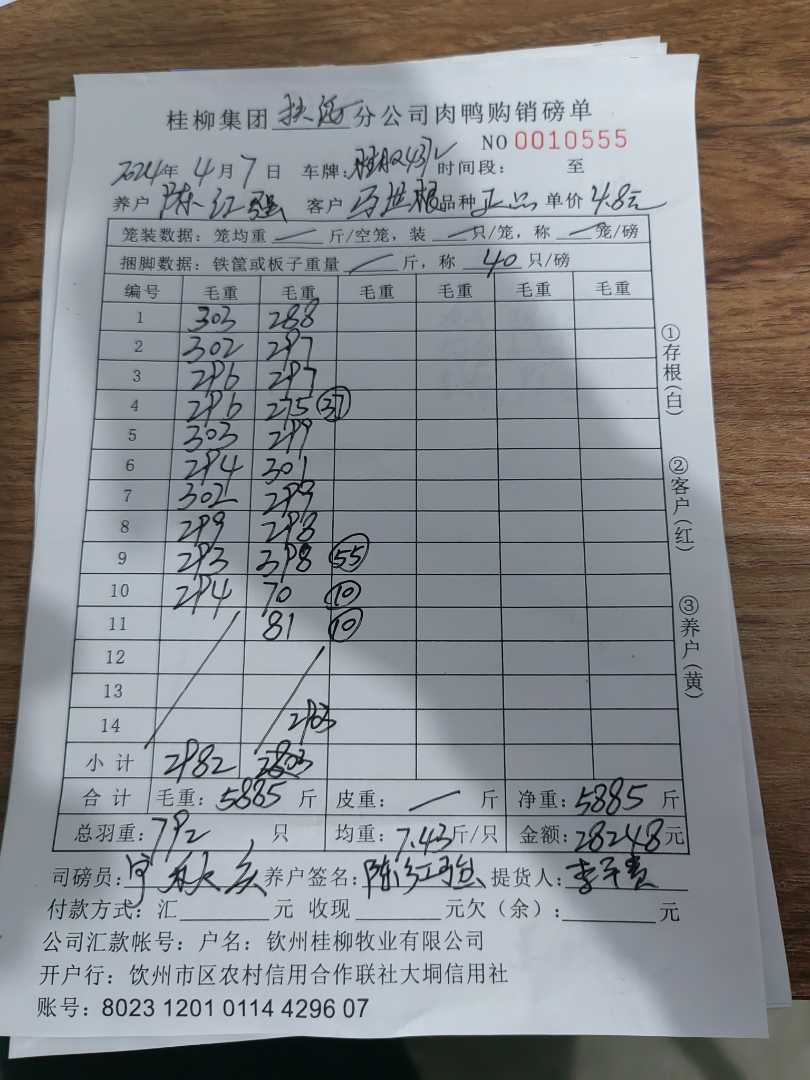 桂柳集团 分公司肉鸭购销磅单
NO 0010555
2024年 4月7日 车牌: 时间段: 至
养户 陈红强 客户 马世根 品种 正品 单价 4.8元
笼装数据: 笼均重 — 斤/空笼, 装 — 只/笼, 称 — 笼/磅
捆脚数据: 铁筐或板子重量 — 斤, 称 40 只/磅
编号 毛重 毛重 毛重 毛重 毛重 毛重
1 303 288
2 302 297
3 296 297
4 296 275 37
5 303 299
6 294 301
7 302 299
8 299 298
9 293 398 55
10 294 70 10
11 81 10
12
13
14 2903
小计 2982 2803
合计 毛重: 5885 斤 皮重: — 斤 净重: 5885 斤
总羽重: 792 只 均重: 7.43斤/只 金额: 28248元
司磅员: 养户签名: 陈红强 提货人: 李平贵
付款方式: 汇 元 收现 元欠(余): 元
公司汇款帐号: 户名: 钦州桂柳牧业有限公司
开户行: 饮州市区农村信用合作联社大垌信用社
账号: 8023 1201 0114 4296 07
①存根(白)
②客户(红)
③养户(黄)